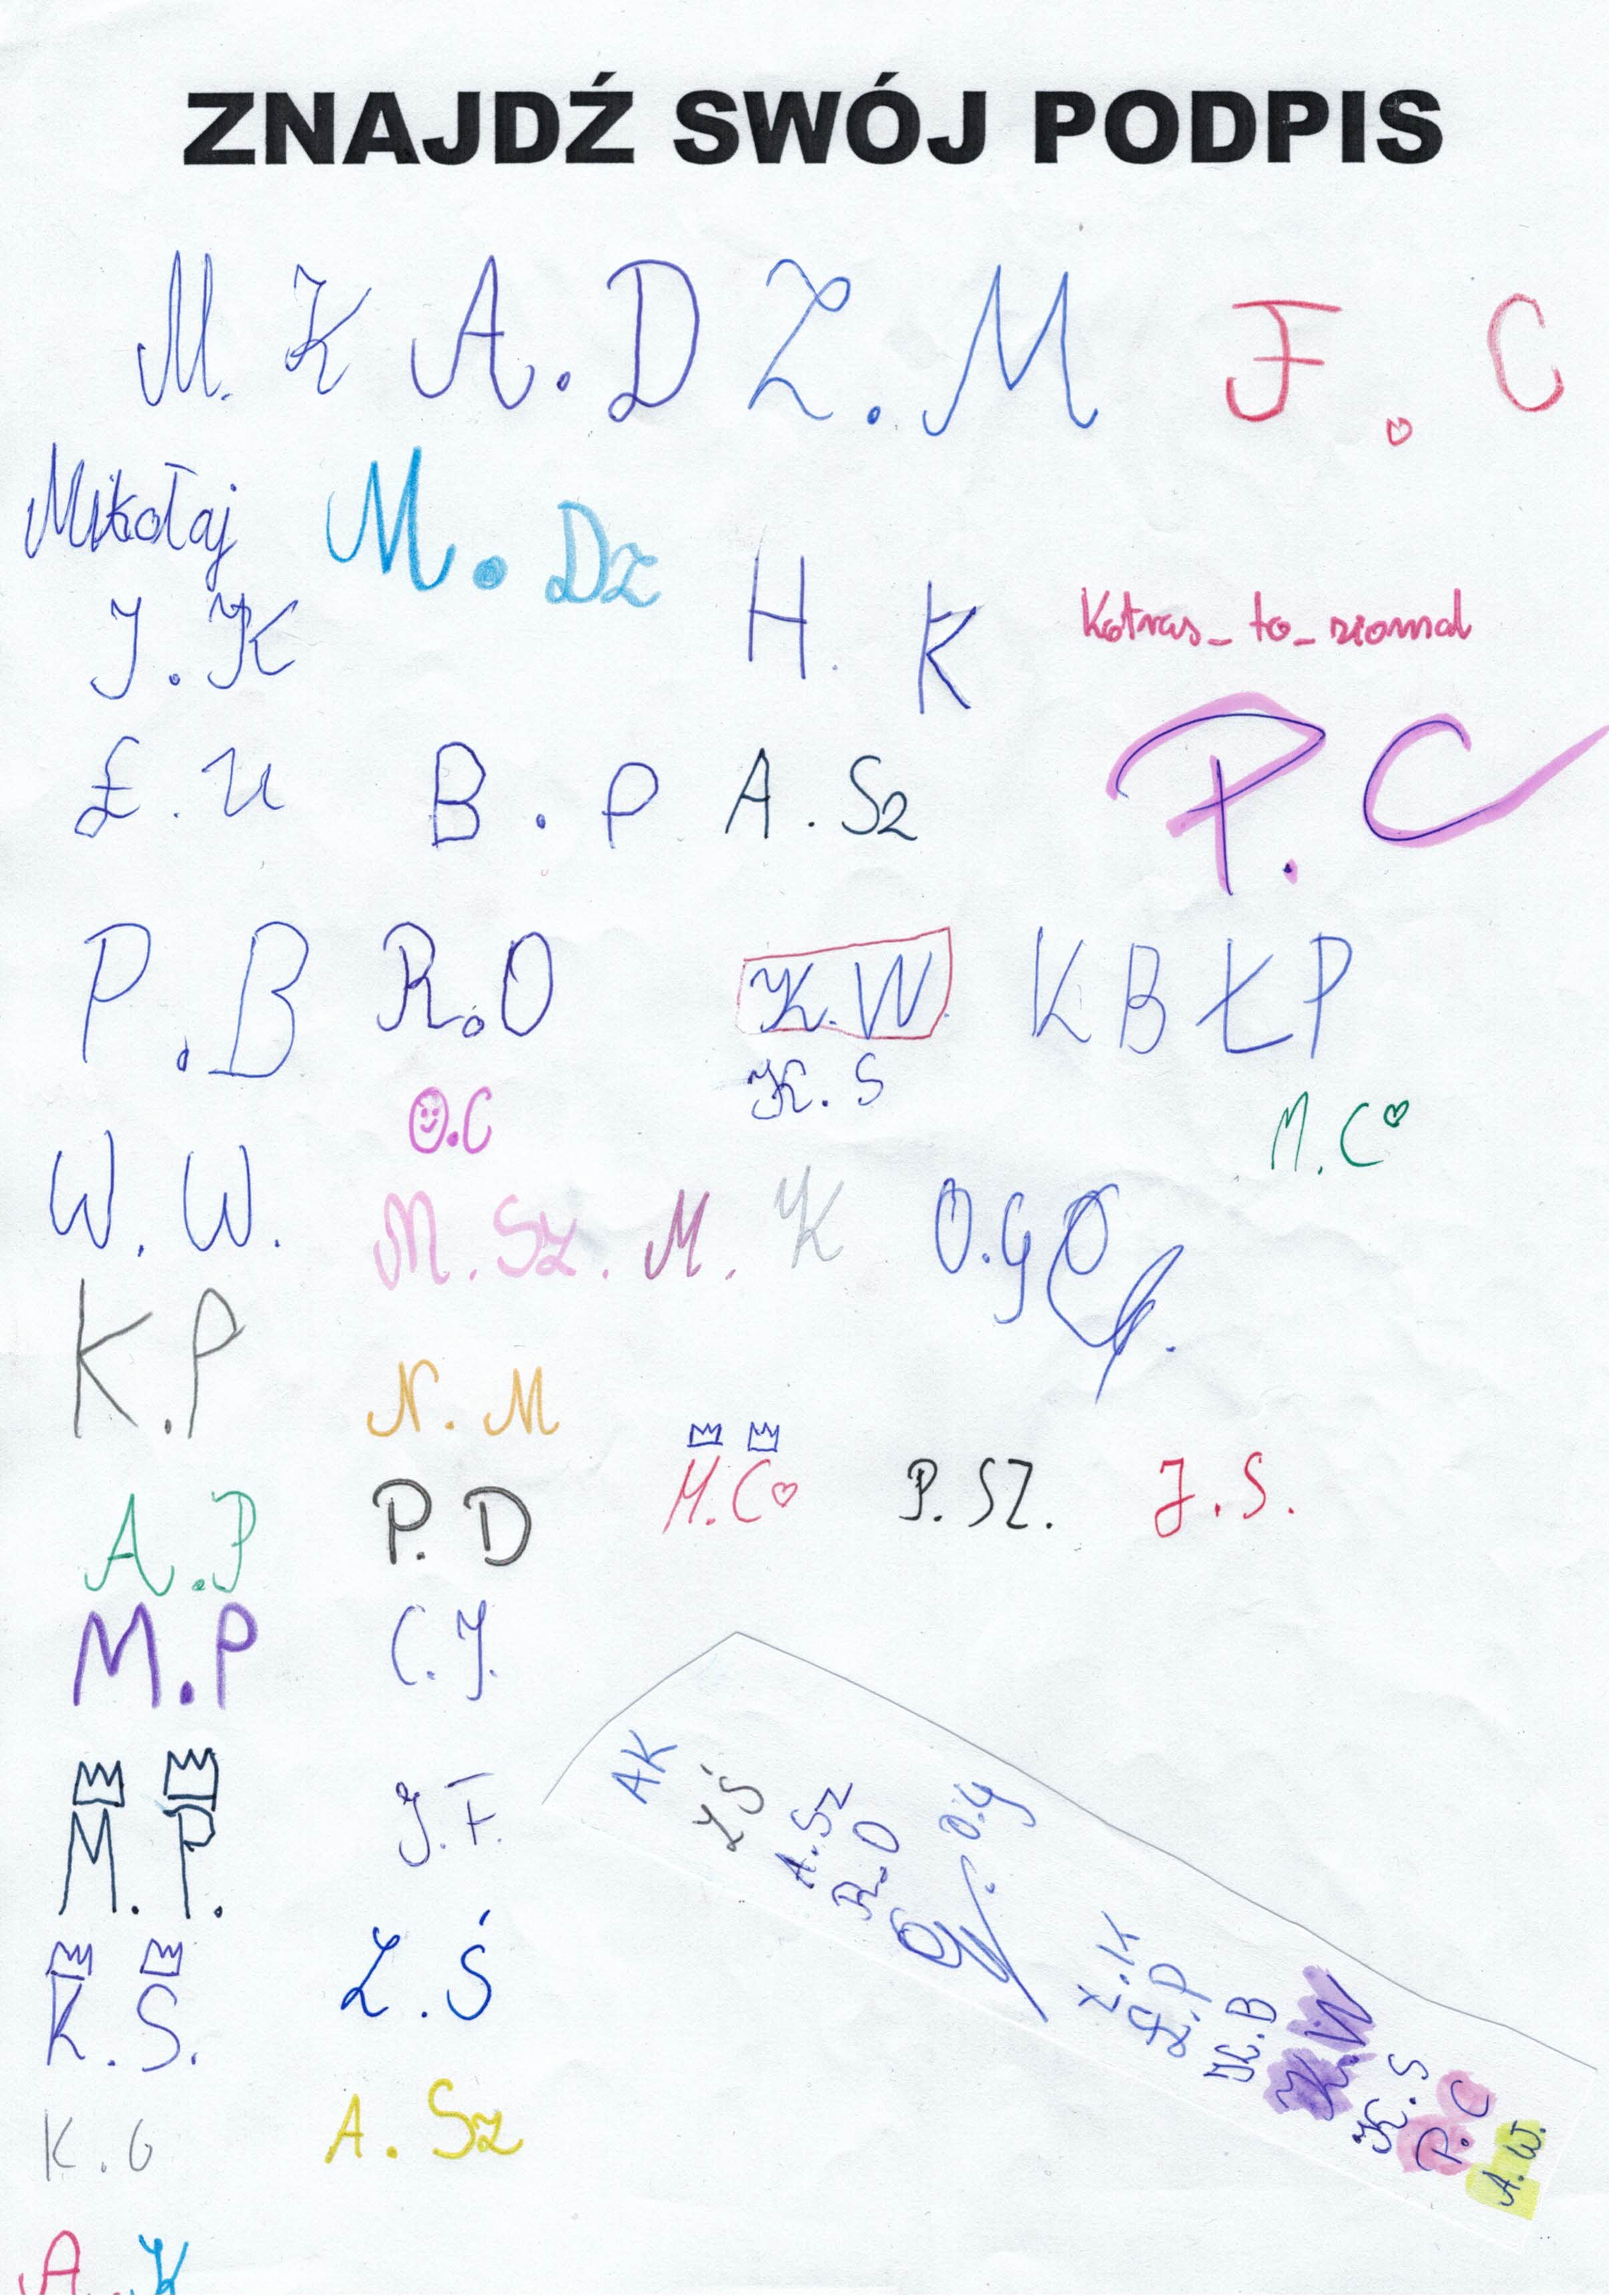 ZNAJDŹ SWÓJ PODPIS
M. K A.D Z.M F.C
Mikołaj M.Dz
J.K H.K Kotras_to_ziomal
Ł.U B.P A.Sz P.C
P.B R.O K.W. K B Ł P
K.S
O.C M.C
W.W. M.Sz. M.K O.G
K.P
N.M
M.C P.SZ. J.S.
A.P P.D
M.P C.J.
M.P. J.F.
K.S. Z.Ś
K.G A.Sz
A.K
AK
ZŚ
A.Sz
R.O
O.G
Ł.K
Ł.P
K.B
K.W
K.S
P.C
A.W.